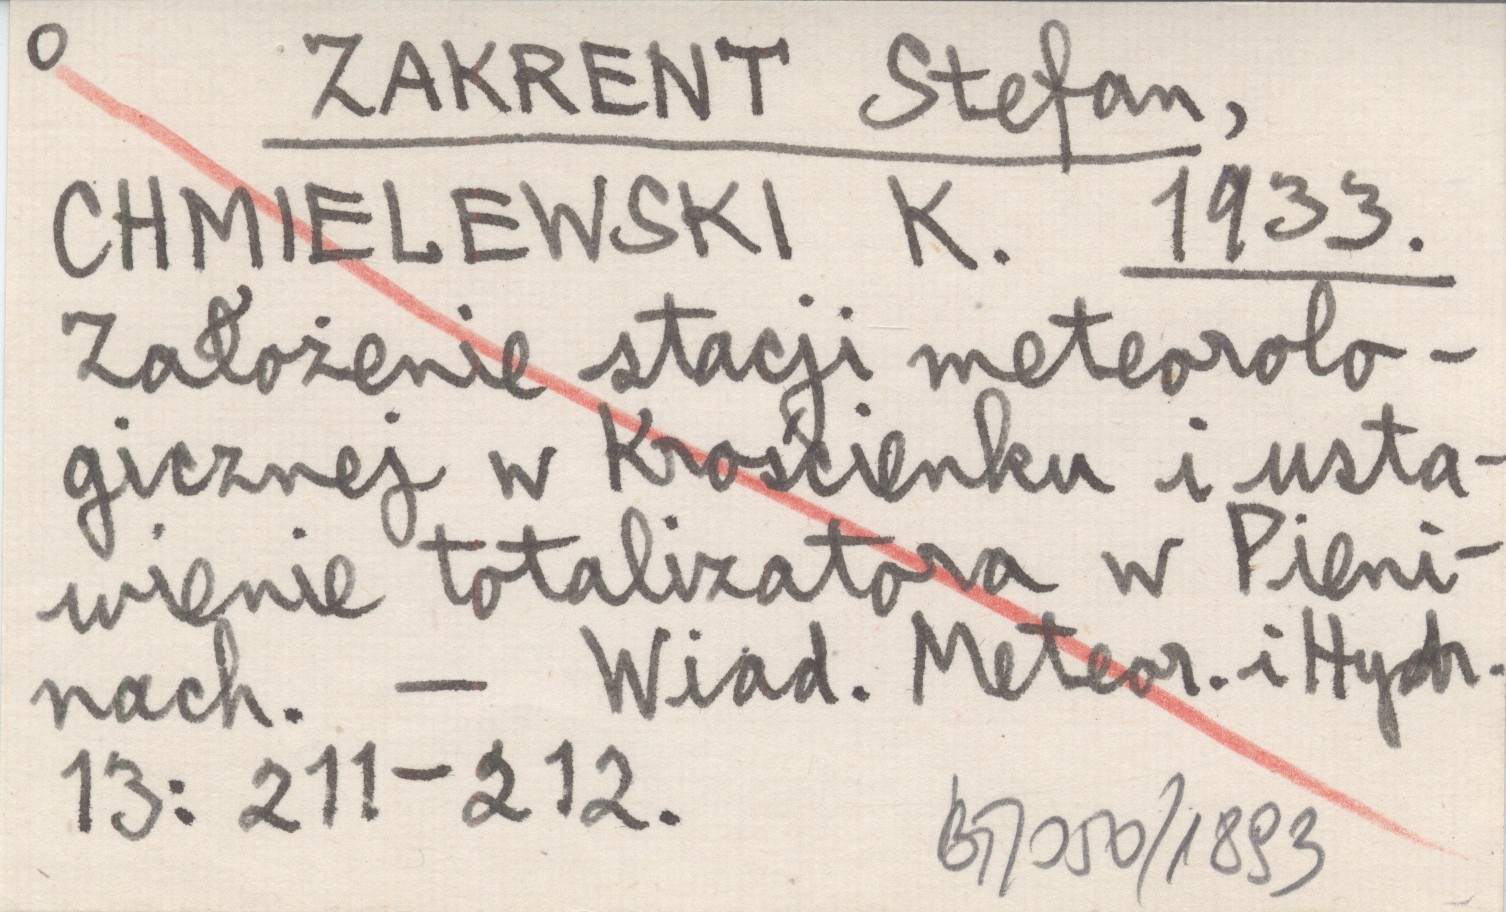 o ZAKRENT Stefan,
CHMIELEWSKI K. 1933.
Założenie stacji meteorolo-
gicznej w Krościenku i usta-
wienie totalizatora w Pieni-
nach. — Wiad. Meteor. i Hydr.
13: 211-212.